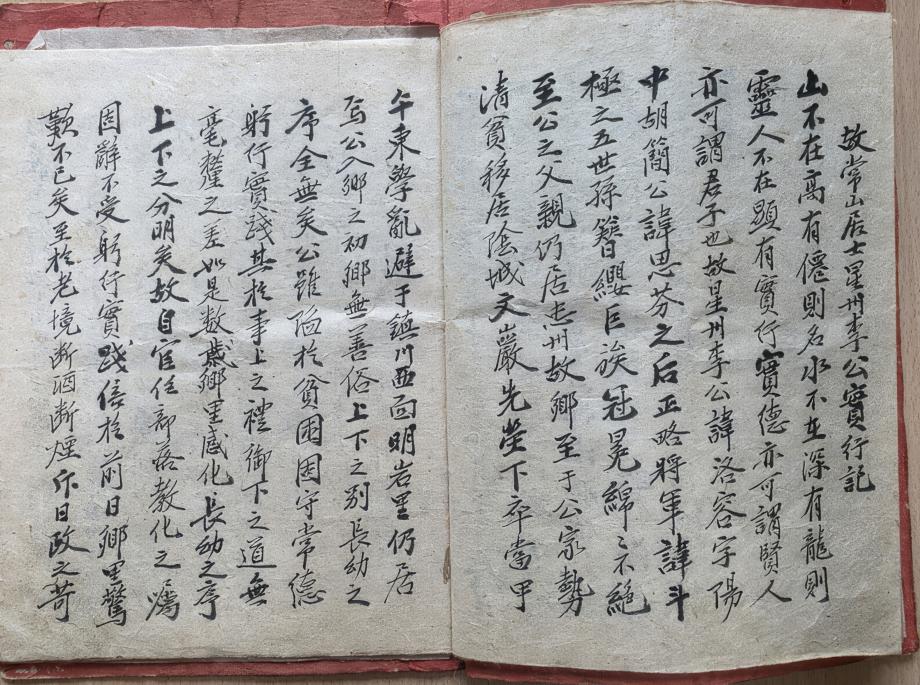 故常山居士星州李公實行記
山不在高有僊則名水不在深有龍則
靈人不在顯有實行實德亦可謂賢人
亦可謂君子也故星州李公諱洛容字陽
中胡簡公諱思芬之后正略將軍諱斗
極之五世孫簪纓巨族冠冕綿〻不絕
至公之父親仍居忠州故鄉至于公家勢
清貧移居陰城文巖先塋下卒當甲
午東學亂避于鎮川西面明岩里仍居
焉公入鄉之初鄉無善俗上下之別長幼之
序全無矣公雖陷於貧困固守常德
躬行實踐其於事上之禮御下之道無
毫釐之差如是数歲鄉里感化長幼之序
上下之分明矣故自官任部落教化之囑
固辭不受躬行實踐倍於前日鄉里驚
歎不已矣至於老境断酒断煙斥日政之苛